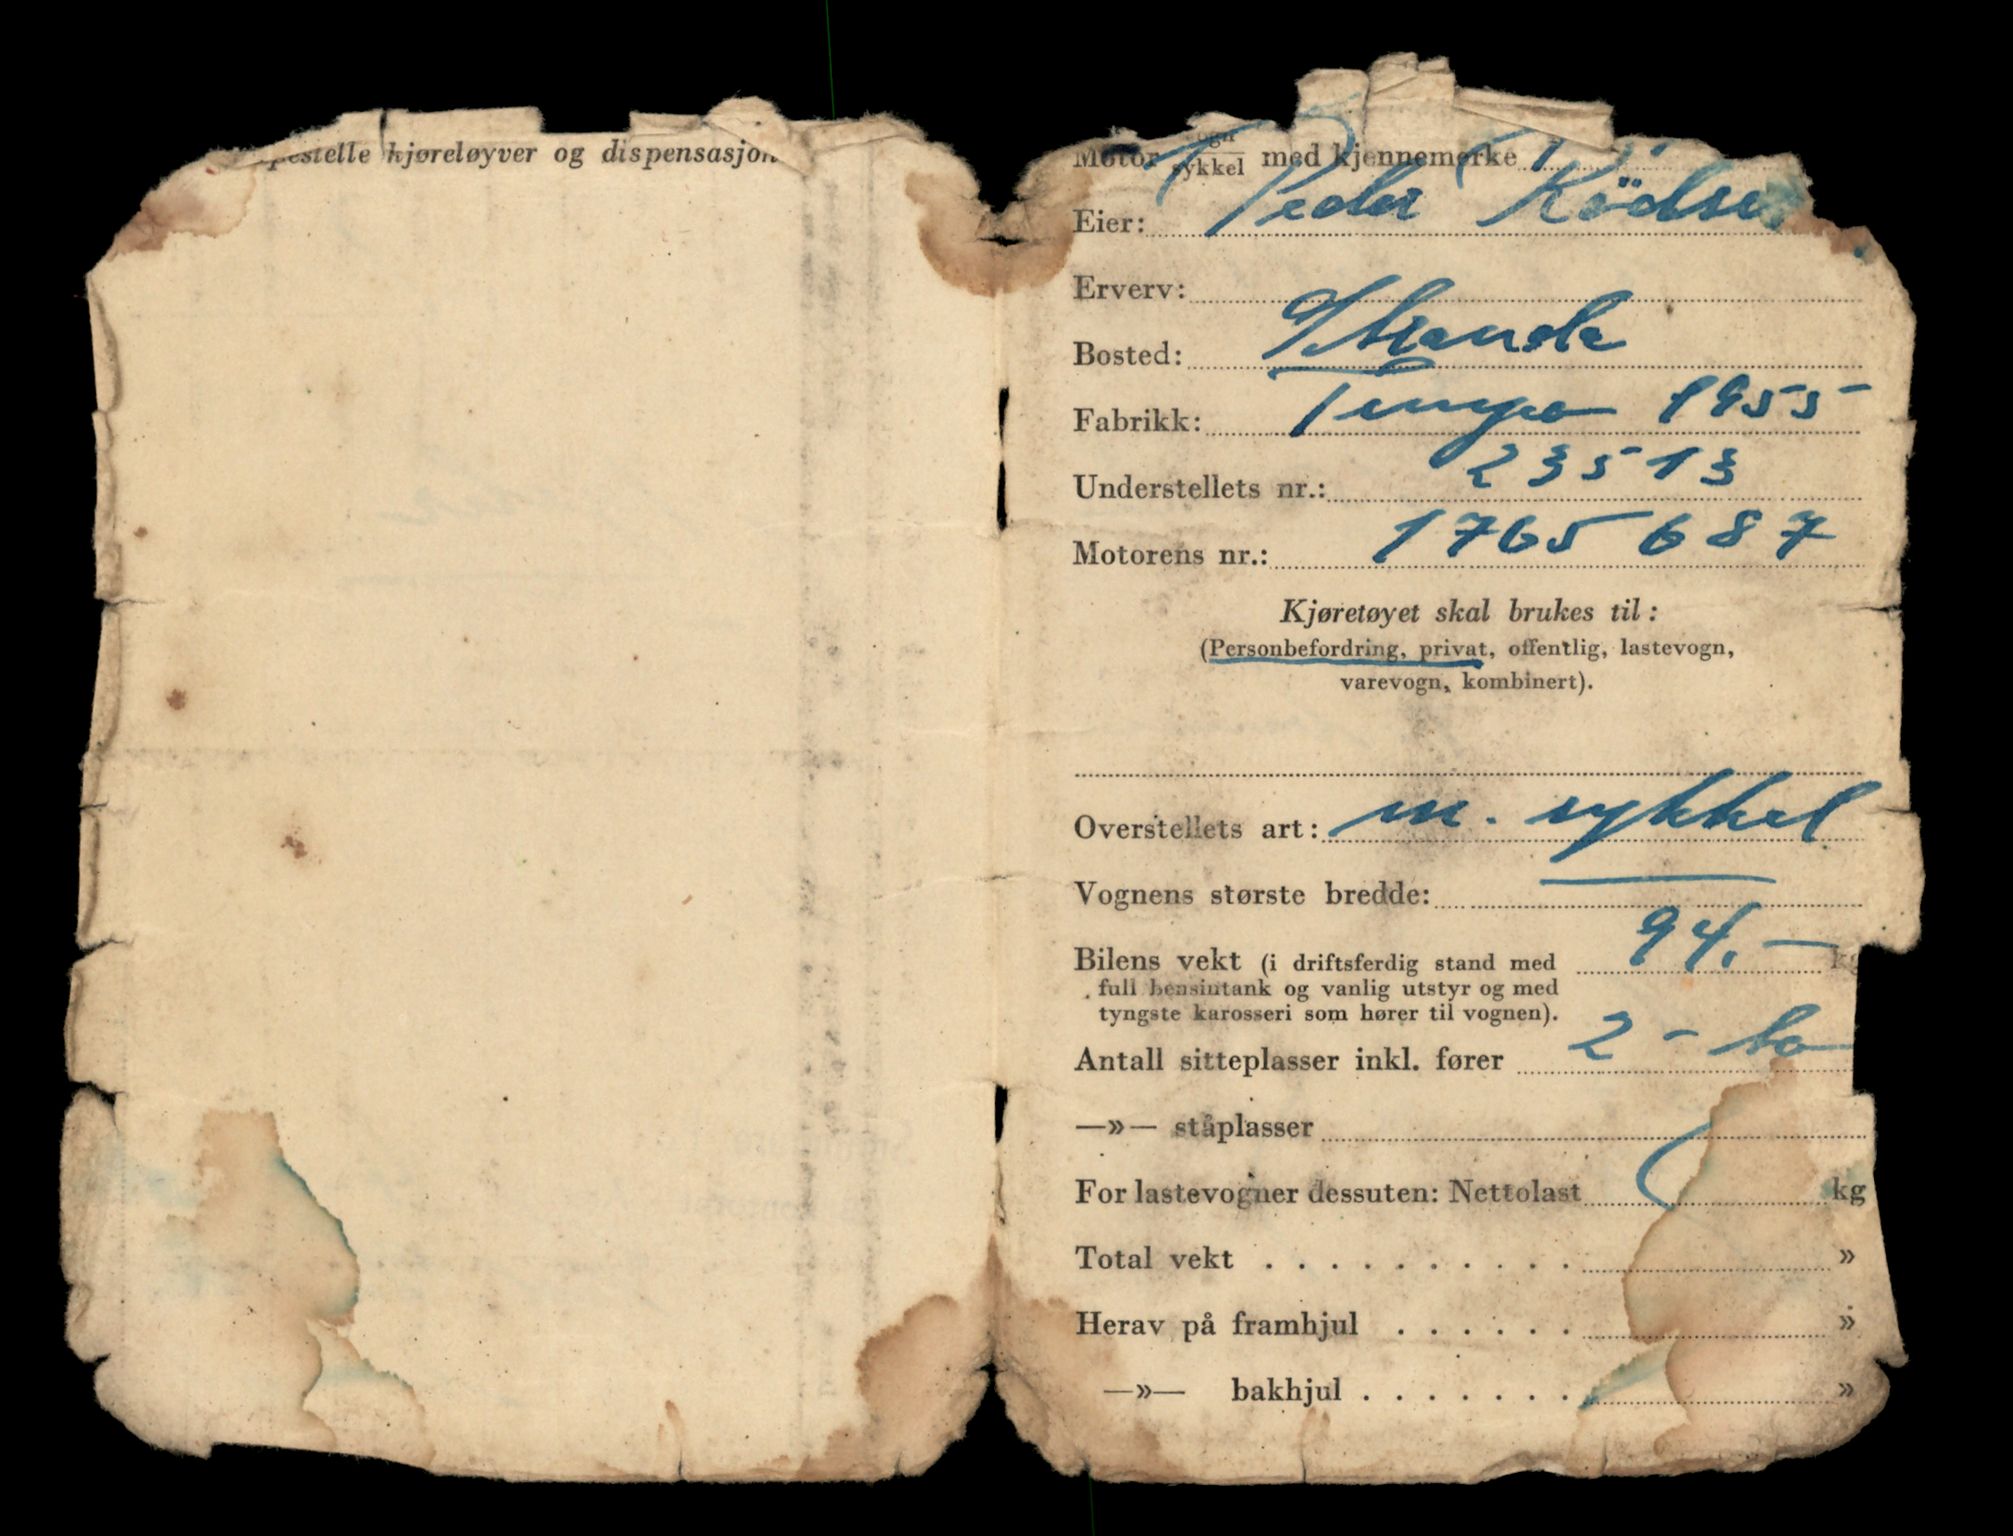 spesielle kjøreløyver og dispensasjon
Motor vogn/sykkel med kjennemerke
Eier: Peder Rödset
Erverv:
Bosted: Stranda
Fabrikk: Tempo 1955
Understellets nr.: 23513
Motorens nr.: 1765687
Kjøretøyet skal brukes til:
(Personbefordring, privat, offentlig, lastevogn,
varevogn, kombinert).
Overstellets art: m. sykkel
Vognens største bredde:
Bilens vekt (i driftsferdig stand med 94.— kg
full bensintank og vanlig utstyr og med
tyngste karosseri som hører til vognen).
Antall sitteplasser inkl. fører 2 - to
—»— ståplasser
For lastevogner dessuten: Nettolast kg
Total vekt . . . . . . . . . . »
Herav på framhjul . . . . . . »
—»— bakhjul . . . . . . . »